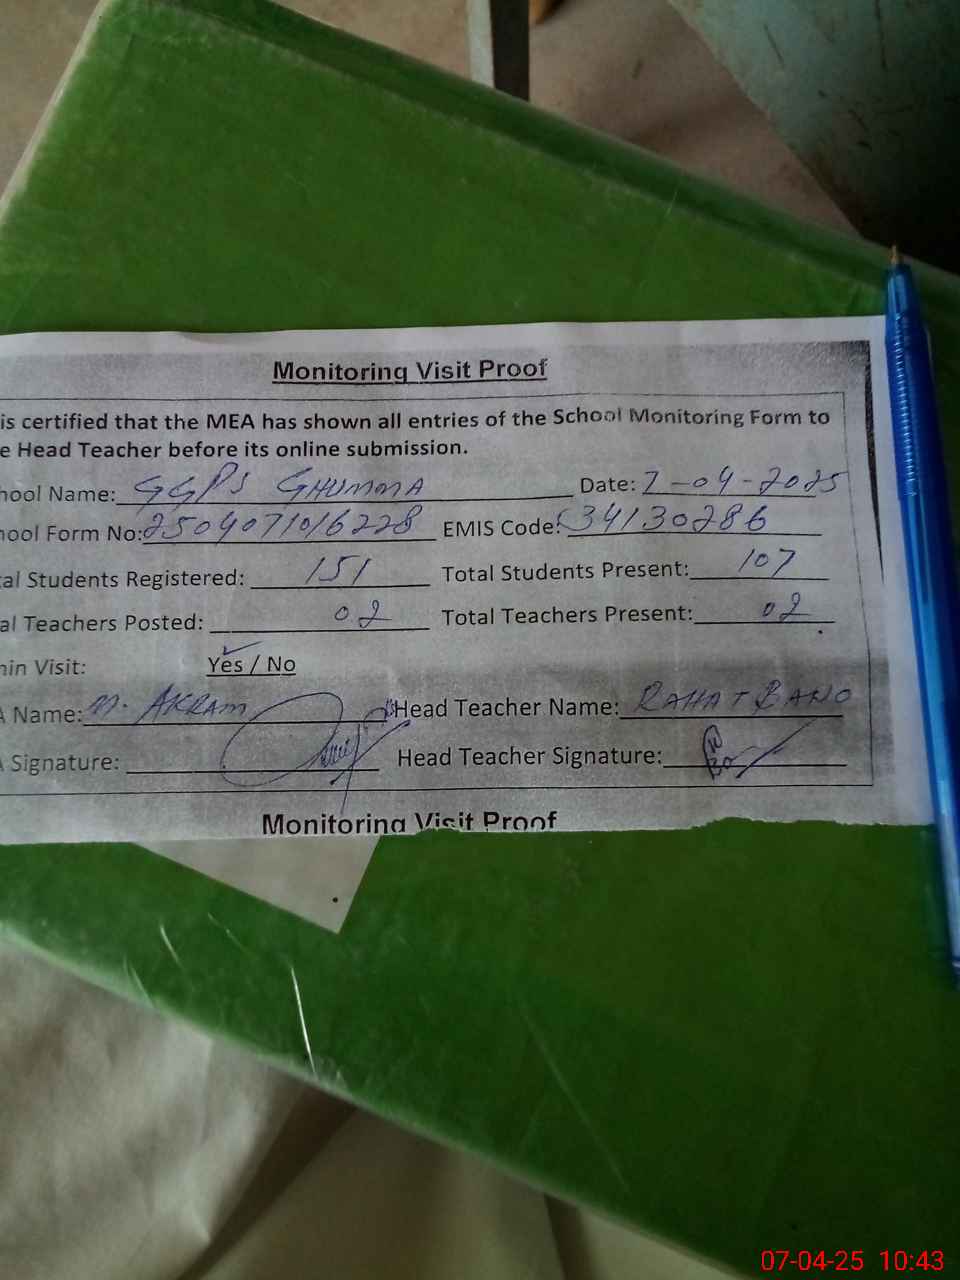 Monitoring Visit Proof
is certified that the MEA has shown all entries of the School Monitoring Form to
e Head Teacher before its online submission.
hool Name: GGPS GHUMMA Date: 7-04-2025
hool Form No: 2504071016228 EMIS Code: 34130286
al Students Registered: 151 Total Students Present: 107
al Teachers Posted: 02 Total Teachers Present: 02
min Visit: Yes / No
A Name: M. AKRAM Head Teacher Name: RAHAT BANO
A Signature: Head Teacher Signature:
Monitoring Visit Proof
07-04-25 10:43